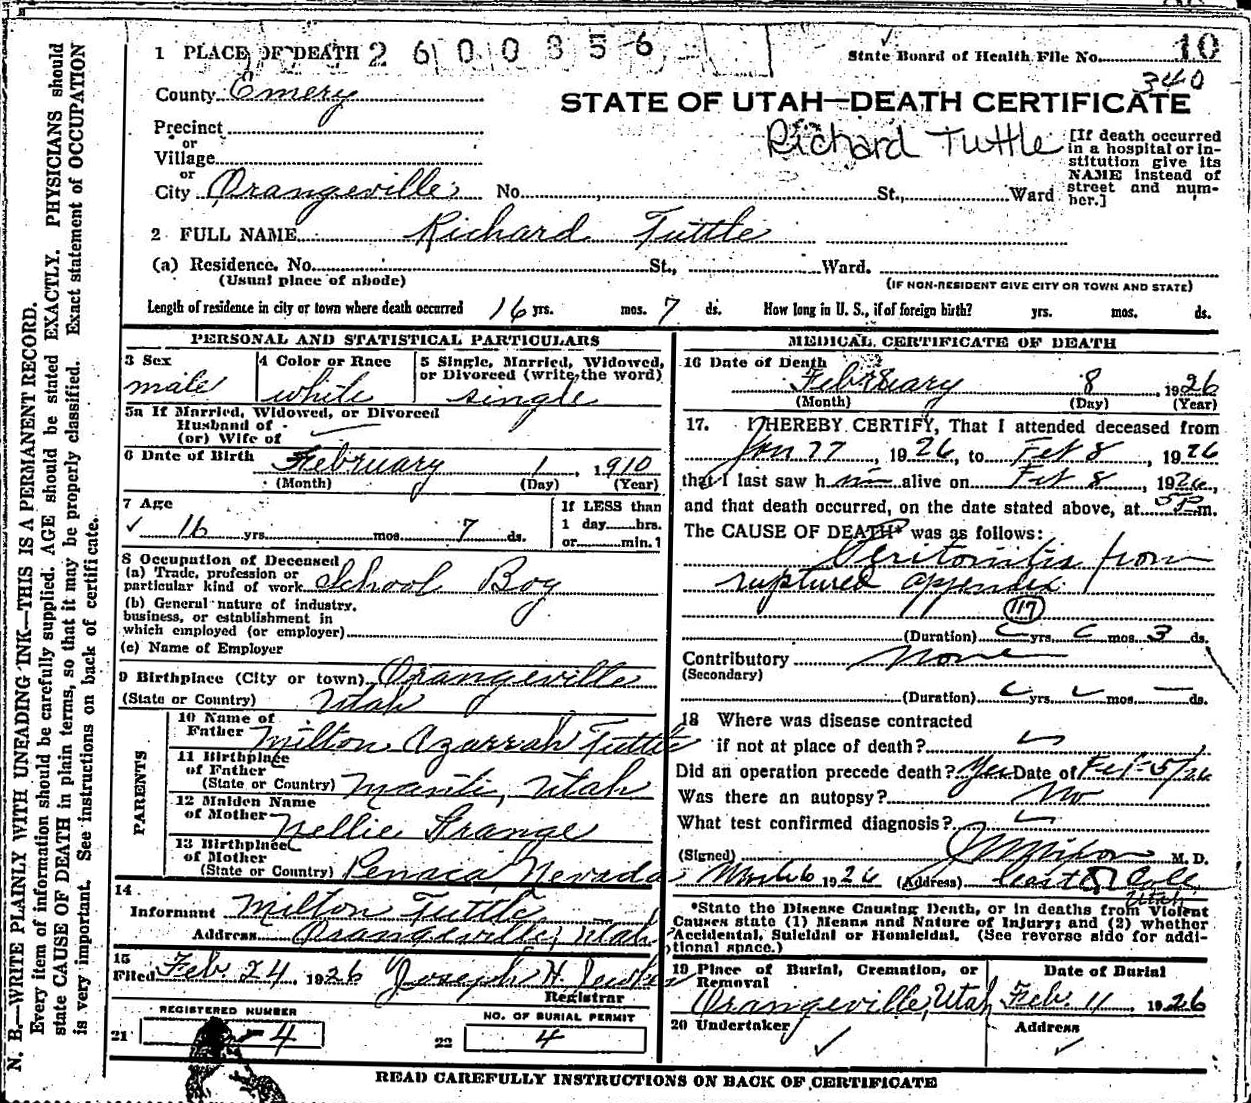 1 PLACE OF DEATH 2600356
State Board of Health File No. 10
340
County Emery
STATE OF UTAH—DEATH CERTIFICATE
Richard Tuttle
[If death occurred in a hospital or institution give its NAME instead of street and number.]
Precinct
or
Village
or
City Orangeville No. St., Ward
2 FULL NAME Richard Tuttle
(a) Residence. No. St., Ward.
(Usual place of abode) (IF NON-RESIDENT GIVE CITY OR TOWN AND STATE)
Length of residence in city or town where death occurred 16 yrs. mos. 7 ds. How long in U. S., if of foreign birth? yrs. mos. ds.
PERSONAL AND STATISTICAL PARTICULARS
3 Sex
male
4 Color or Race
white
5 Single, Married, Widowed, or Divorced (write the word)
single
5a If Married, Widowed, or Divorced
Husband of
(or) Wife of
6 Date of Birth February 1, 1910
(Month) (Day) (Year)
7 Age
16 yrs. mos. 7 ds.
If LESS than
1 day hrs.
or min.?
8 Occupation of Deceased
(a) Trade, profession or
particular kind of work School Boy
(b) General nature of industry,
business, or establishment in
which employed (or employer)
(c) Name of Employer
9 Birthplace (City or town) Orangeville
(State or Country) Utah
PARENTS
10 Name of
Father Milton Azariah Tuttle
11 Birthplace
of Father
(State or Country) Manti, Utah
12 Maiden Name
of Mother Nellie Strange
13 Birthplace
of Mother
(State or Country) Panaca, Nevada
14
Informant Milton Tuttle
Address Orangeville, Utah
15
Filed Feb. 24, 1926 Joseph H.
Registrar
REGISTERED NUMBER
21 4
NO. OF BURIAL PERMIT
22 4
MEDICAL CERTIFICATE OF DEATH
16 Date of Death
February 8 1926
(Month) (Day) (Year)
17. I HEREBY CERTIFY, That I attended deceased from
Jan 27, 1926, to Feb 8, 1926
that I last saw him alive on Feb 8, 1926,
and that death occurred, on the date stated above, at 5 P. m.
The CAUSE OF DEATH* was as follows:
Peritonitis from
ruptured appendix
117
(Duration) yrs. mos. 3 ds.
Contributory None
(Secondary)
(Duration) yrs. mos. ds.
18 Where was disease contracted
if not at place of death?
Did an operation precede death? Yes Date of Feb 5/26
Was there an autopsy? No
What test confirmed diagnosis?
(Signed) M. D.
1926 (Address) Castle Dale
Utah
*State the Disease Causing Death, or in deaths from Violent
Causes state (1) Means and Nature of Injury; and (2) whether
Accidental, Suicidal or Homicidal. (See reverse side for addi-
tional space.)
19 Place of Burial, Cremation, or
Removal
Orangeville, Utah
Date of Burial
Feb. 11, 1926
20 Undertaker
Address
READ CAREFULLY INSTRUCTIONS ON BACK OF CERTIFICATE
N. B.—WRITE PLAINLY WITH UNFADING INK—THIS IS A PERMANENT RECORD.
Every item of information should be carefully supplied. AGE should be stated EXACTLY. PHYSICIANS should
state CAUSE OF DEATH in plain terms, so that it may be properly classified. Exact statement of OCCUPATION
is very important. See instructions on back of certificate.